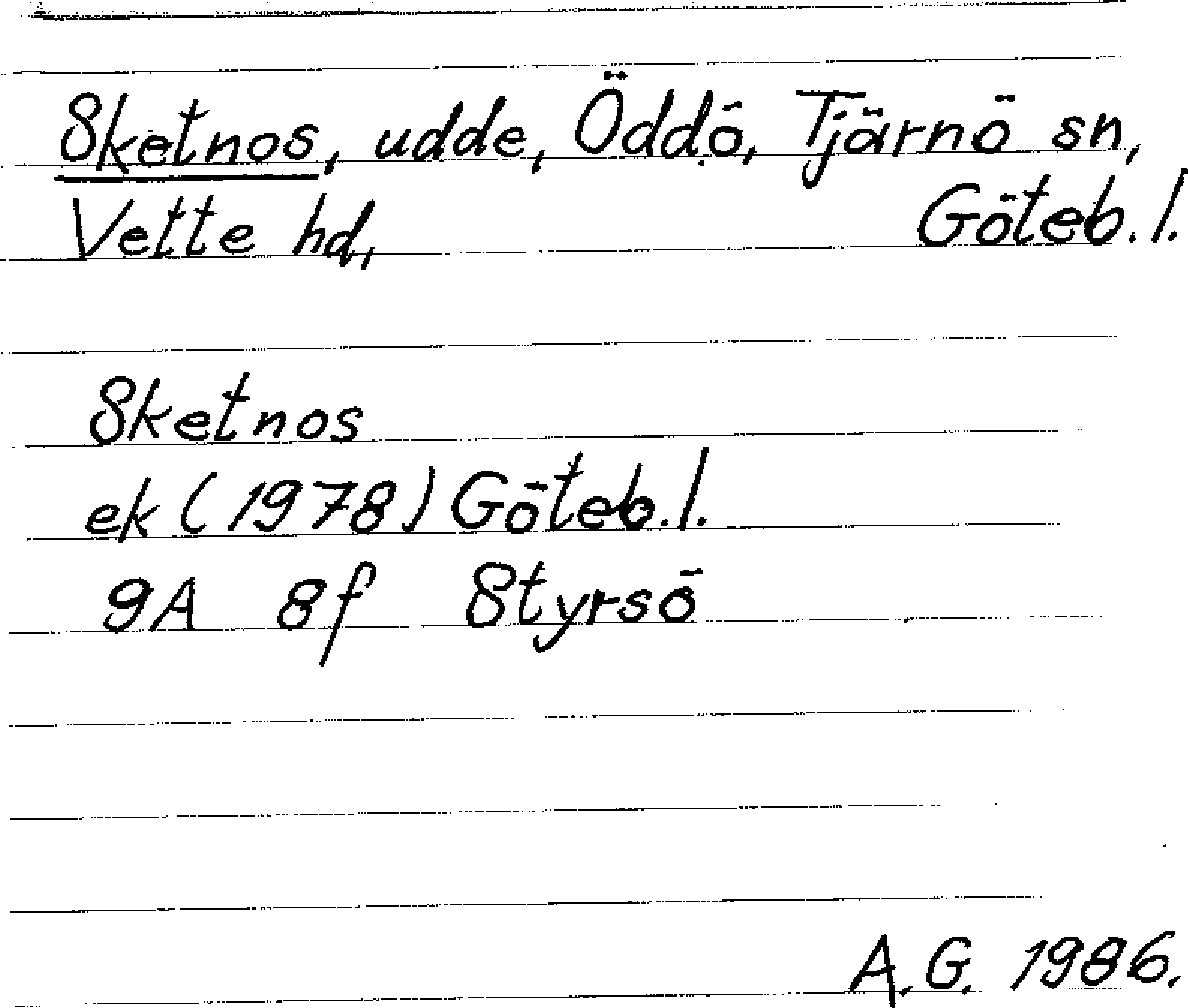 Sketnos, udde, Öddö, Tjärnö sn,
Vette hd, Göteb. l.
Sketnos
ek (1978) Göteb. l.
9A 8f Styrsö
A.G. 1986.